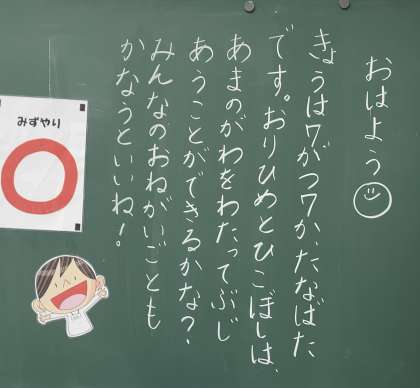 おはよう
きょうは7がつ7か、たなばた
です。おりひめとひこぼしは、
あまのがわをわたってぶじ
あうことができるかな?
みんなのおねがいごとも
かなうといいね!。
みずやり